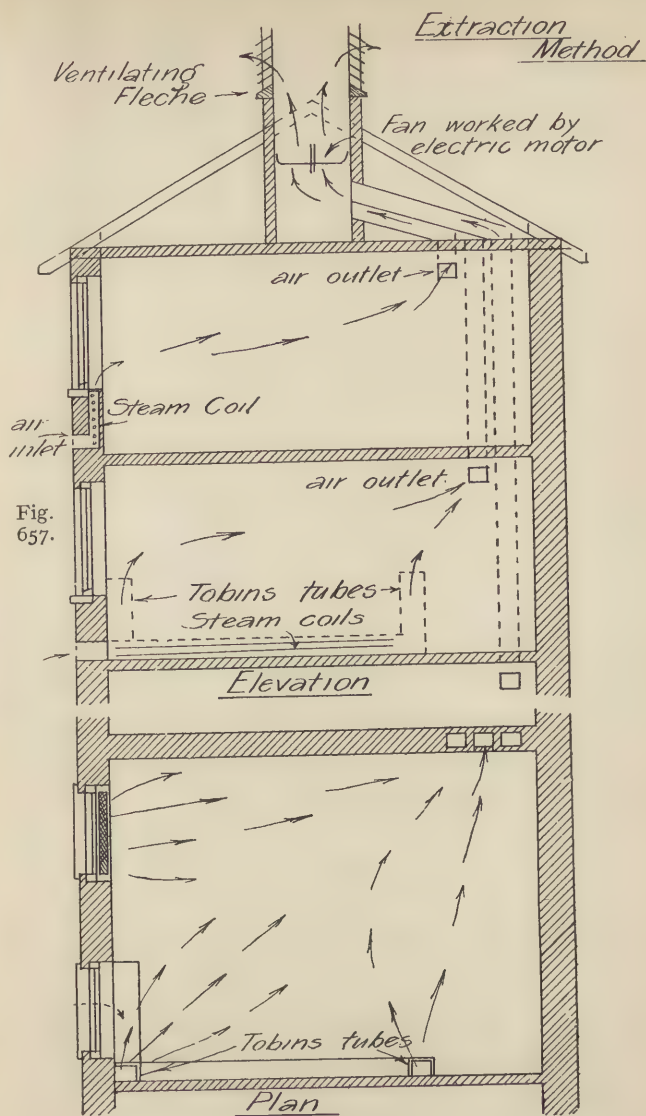 Extraction
Method
Ventilating
Fleche
Fan worked by
electric motor
air outlet
Steam Coil
air
inlet
air outlet
Fig.
657.
Tobins tubes
Steam coils
Elevation
Tobins tubes
Plan